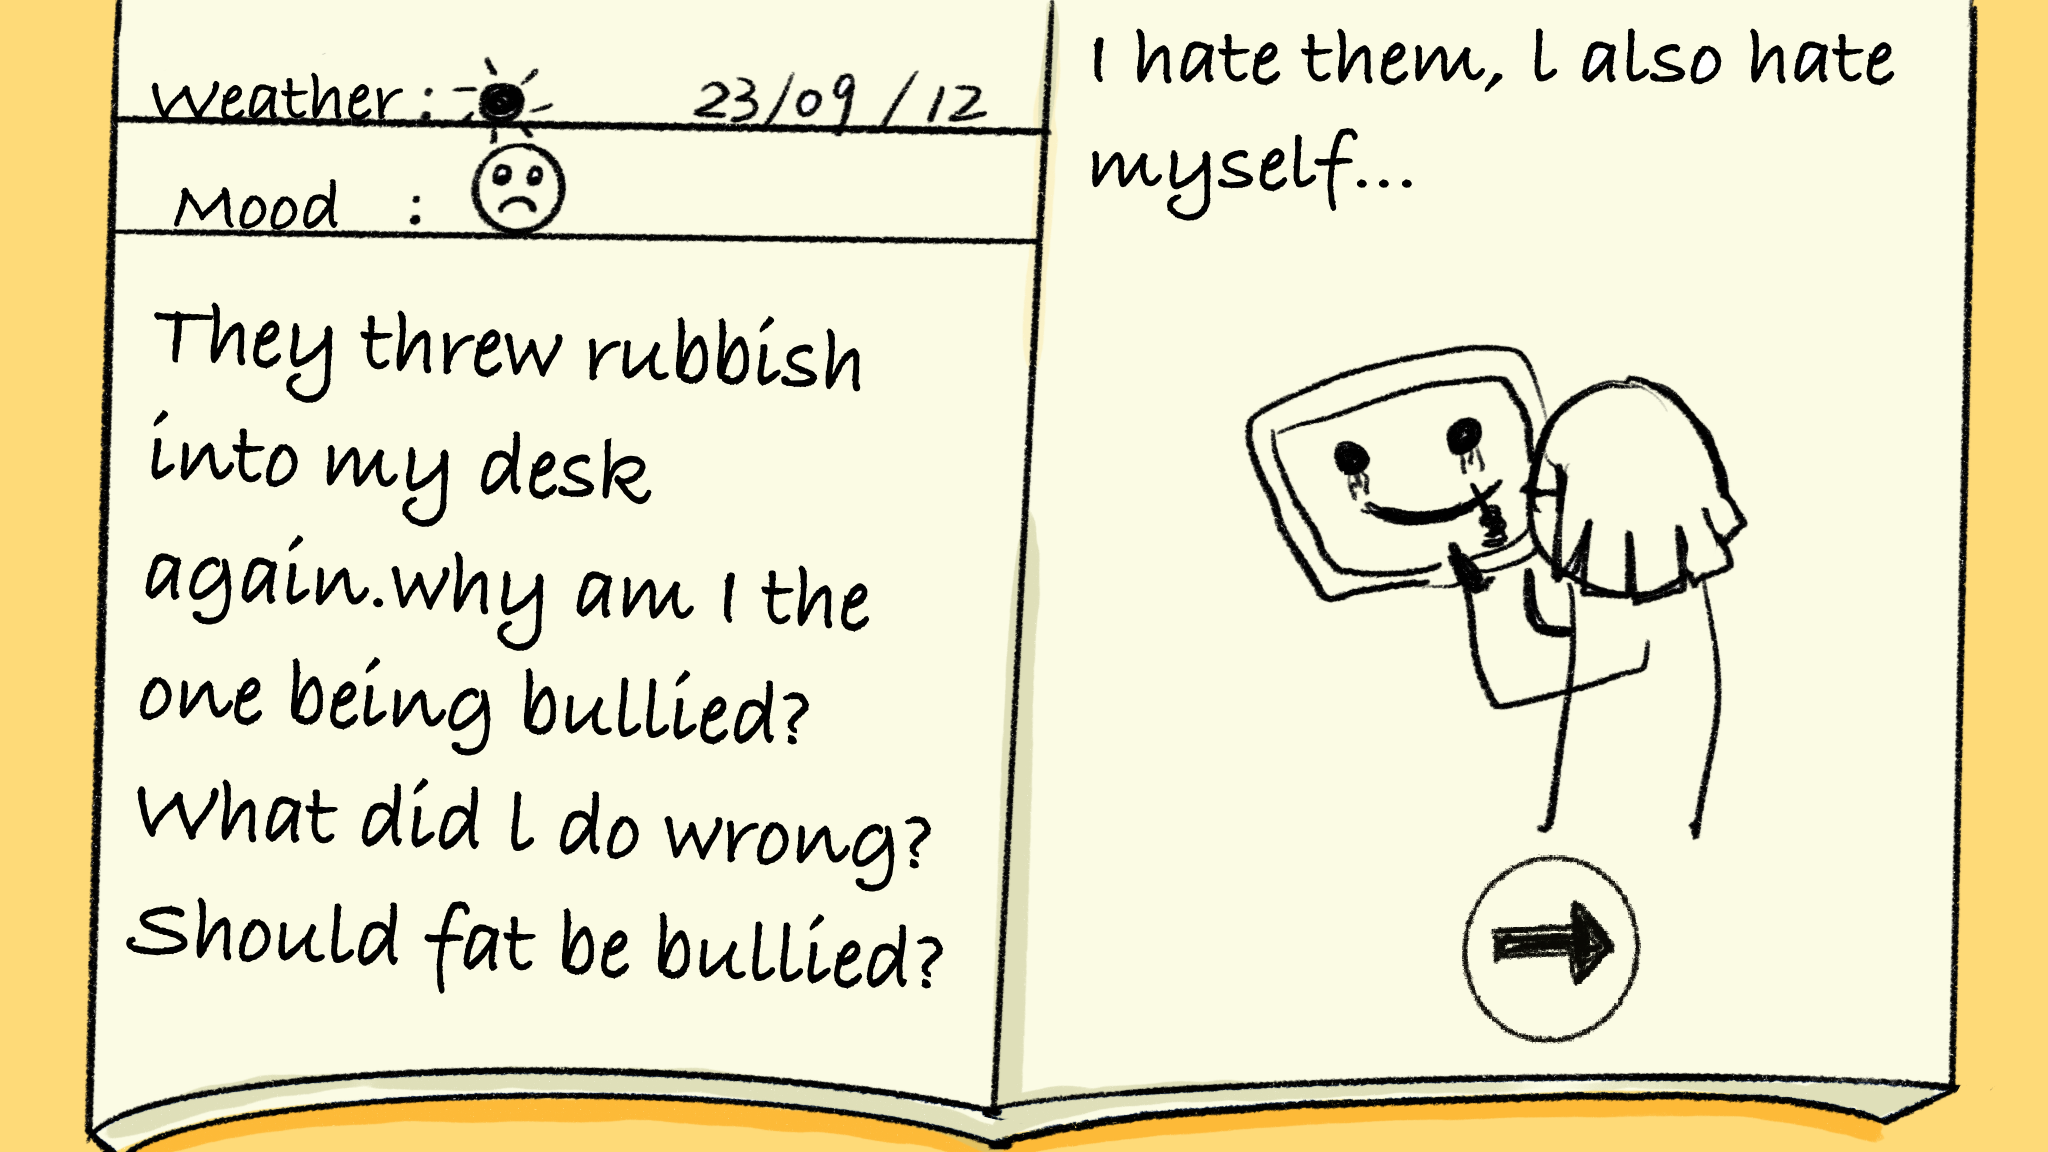 Weather : 23/09/12
Mood :
They threw rubbish
into my desk
again.why am I the
one being bullied?
What did l do wrong?
Should fat be bullied?
I hate them, l also hate
myself...